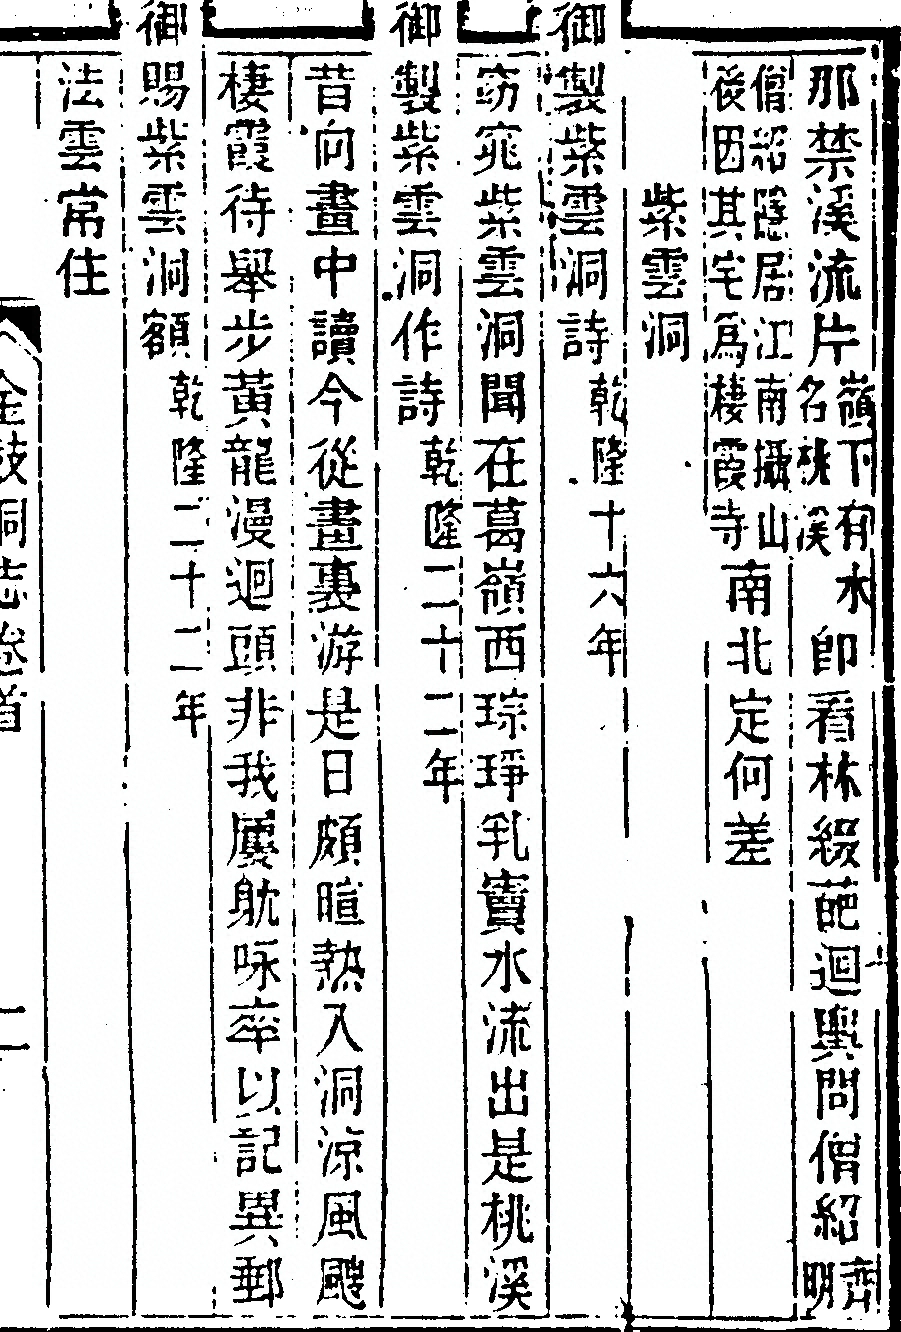 那禁溪流片嶺下有水名桃溪卽看林綴葩迴輿問僧紹齊明
僧紹隱居江南攝山後因其宅爲棲霞寺南北定何差
紫雲洞
御製紫雲洞詩乾隆十六年
窈窕紫雲洞聞在葛嶺西琮琤乳竇水流出是桃溪
御製紫雲洞作詩乾隆二十二年
昔向畫中讀今從畫裏游是日頗暄熱入洞涼風颼
棲霞待舉步黃龍漫迴頭非我屢躭咏率以記異郵
御賜紫雲洞額乾隆二十二年
法雲常住
金鼓洞志卷首
二